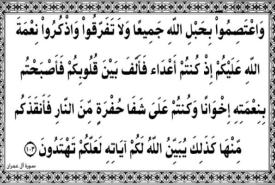 وَاعْتَصِمُواْ بِحَبْلِ اللَّهِ جَمِيعًا وَلاَ تَفَرَّقُواْ وَاذْكُرُواْ نِعْمَةَ
اللَّهِ عَلَيْكُمْ إِذْ كُنتُمْ أَعْدَاء فَأَلَّفَ بَيْنَ قُلُوبِكُمْ فَأَصْبَحْتُم
بِنِعْمَتِهِ إِخْوَانًا وَكُنتُمْ عَلَىَ شَفَا حُفْرَةٍ مِّنَ النَّارِ فَأَنقَذَكُم
مِّنْهَا كَذَلِكَ يُبَيِّنُ اللَّهُ لَكُمْ آيَاتِهِ لَعَلَّكُمْ تَهْتَدُونَ ﴿١٠٣﴾
سورة آل عمران